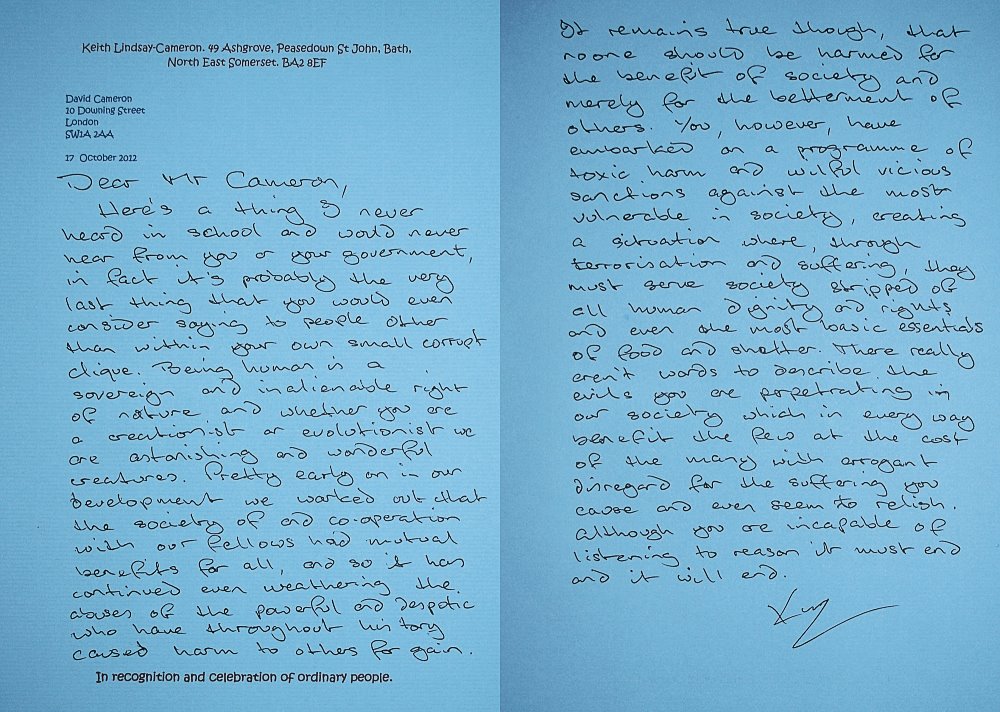 Keith Lindsay-Cameron. 49 Ashgrove, Peasedown St John, Bath,
North East Somerset. BA2 8EF
David Cameron
10 Downing Street
London
SW1A 2AA
17 October 2012
Dear Mr Cameron,
Here's a thing I never
heard in school and would never
hear from you or your government,
in fact it's probably the very
last thing that you would even
consider saying to people other
than within your own small corrupt
clique. Being human is a
sovereign and inalienable right
of nature and whether you are
a creationist or evolutionist we
are astonishing and wonderful
creatures. Pretty early on in our
development we worked out that
the society of and co-operation
with our fellows had mutual
benefits for all, and so it has
continued even weathering the
abuses of the powerful and despotic
who have throughout history
caused harm to others for gain.
In recognition and celebration of ordinary people.
It remains true though, that
noone should be harmed for
the benefit of society and
merely for the betterment of
others. You, however, have
embarked on a programme of
toxic harm and wilful vicious
sanctions against the most
vulnerable in society, creating
a situation where, through
terrorisation and suffering, they
must serve society stripped of
all human dignity and rights
and even the most basic essentials
of food and shelter. There really
aren't words to describe the
evils you are perpetrating in
our society which in every way
benefit the few at the cost
of the many with arrogant
disregard for the suffering you
cause and even seem to relish.
Although you are incapable of
listening to reason it must end
and it will end.